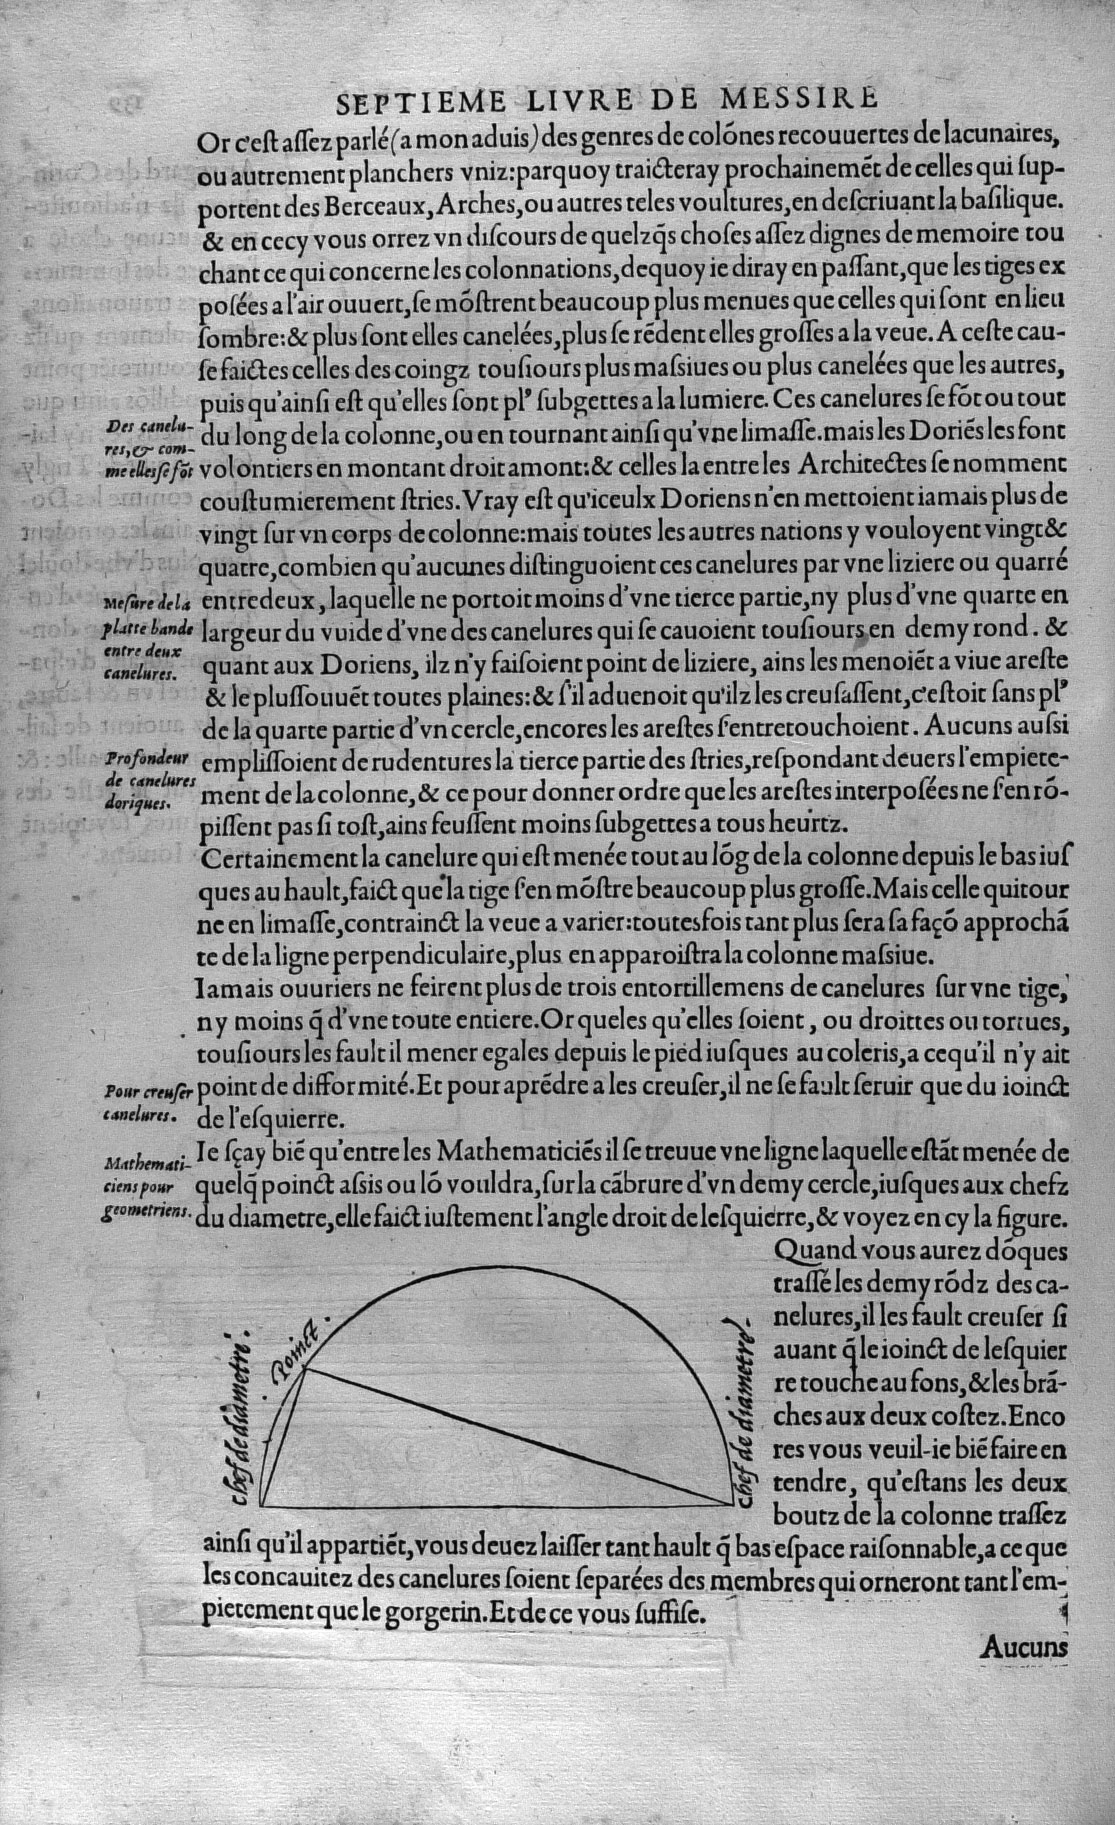 SEPTIEME LIVRE DE MESSIRE
Or c'eſt aſſez parlé (a mon aduis) des genres de colónes recouuertes de lacunaires,
ou autrement planchers vniz: parquoy traicteray prochainemẽt de celles qui ſup-
portent des Berceaux, Arches, ou autres teles voultures, en deſcriuant la baſilique.
& en cecy vous orrez vn diſcours de quelzq̃s choſes aſſez dignes de memoire tou
chant ce qui concerne les colonnations, dequoy ie diray en paſſant, que les tiges ex
poſées a l'air ouuert, ſe mõſtrent beaucoup plus menues que celles qui ſont en lieu
ſombre: & plus ſont elles canelées, plus ſe rẽdent elles groſſes a la veue. A ceſte cau-
ſe faictes celles des coingz touſiours plus maſsiues ou plus canelées que les autres,
puis qu'ainſi eſt qu'elles ſont plꝰ ſubgettes a la lumiere. Ces canelures ſe fõt ou tout
Des canelu-
res, & com-
me elles ſe fõt
du long de la colonne, ou en tournant ainſi qu'vne limaſſe. mais les Doriẽs les font
volontiers en montant droit amont: & celles la entre les Architectes ſe nomment
couſtumierement ſtries. Vray eſt qu'iceulx Doriens n'en mettoient iamais plus de
vingt ſur vn corps de colonne: mais toutes les autres nations y vouloyent vingt &
quatre, combien qu'aucunes diſtinguoient ces canelures par vne liziere ou quarré
Meſure de la
platte bande
entre deux
canelures.
entredeux, laquelle ne portoit moins d'vne tierce partie, ny plus d'vne quarte en
largeur du vuide d'vne des canelures qui ſe cauoient touſiours en demy rond. &
quant aux Doriens, ilz n'y faiſoient point de liziere, ains les menoiẽt a viue areſte
& le pluſſouuẽt toutes plaines: & ſ'il aduenoit qu'ilz les creuſaſſent, c'eſtoit ſans plꝰ
de la quarte partie d'vn cercle, encores les areſtes ſ'entretouchoient. Aucuns auſsi
Profondeur
de canelures
doriques.
empliſſoient de rudentures la tierce partie des ſtries, reſpondant deuers l'empiete-
ment de la colonne, & ce pour donner ordre que les areſtes interpoſées ne ſ'en rõ-
piſſent pas ſi toſt, ains feuſſent moins ſubgettes a tous heurtz.
Certainement la canelure qui eſt menée tout au lõg de la colonne depuis le bas iuſ
ques au hault, faict que la tige ſ'en mõſtre beaucoup plus groſſe. Mais celle qui tour
ne en limaſſe, contrainct la veue a varier: toutesfois tant plus ſera ſa façõ approchã
te de la ligne perpendiculaire, plus en apparoiſtra la colonne maſsiue.
Iamais ouuriers ne feirent plus de trois entortillemens de canelures ſur vne tige,
ny moins q̃ d'vne toute entiere. Or queles qu'elles ſoient, ou droittes ou tortues,
touſiours les fault il mener egales depuis le pied iuſques au coleris, a ce qu'il n'y ait
Pour creuſer
canelures.
point de difformité. Et pour aprẽdre a les creuſer, il ne ſe fault ſeruir que du ioinct
de l'eſquierre.
Mathemati-
ciens pour
geometriens.
Ie ſçay biẽ qu'entre les Mathematiciẽs il ſe treuue vne ligne laquelle eſtãt menée de
quelq̃ poinct aſsis ou lõ vouldra, ſur la cãbrure d'vn demy cercle, iuſques aux chefz
du diametre, elle faict iuſtement l'angle droit de leſquierre, & voyez en cy la figure.
chef de diametre.
Poinct.
chef de diametre.
Quand vous aurez dõques
traſſé les demy rõdz des ca-
nelures, il les fault creuſer ſi
auant q̃ le ioinct de leſquier
re touche au fons, & les brã-
ches aux deux coſtez. Enco
res vous veuil-ie biẽ faire en
tendre, qu'eſtans les deux
boutz de la colonne traſſez
ainſi qu'il appartiẽt, vous deuez laiſſer tant hault q̃ bas eſpace raiſonnable, a ce que
les concauitez des canelures ſoient ſeparées des membres qui orneront tant l'em-
pietement que le gorgerin. Et de ce vous ſuffiſe.
Aucuns